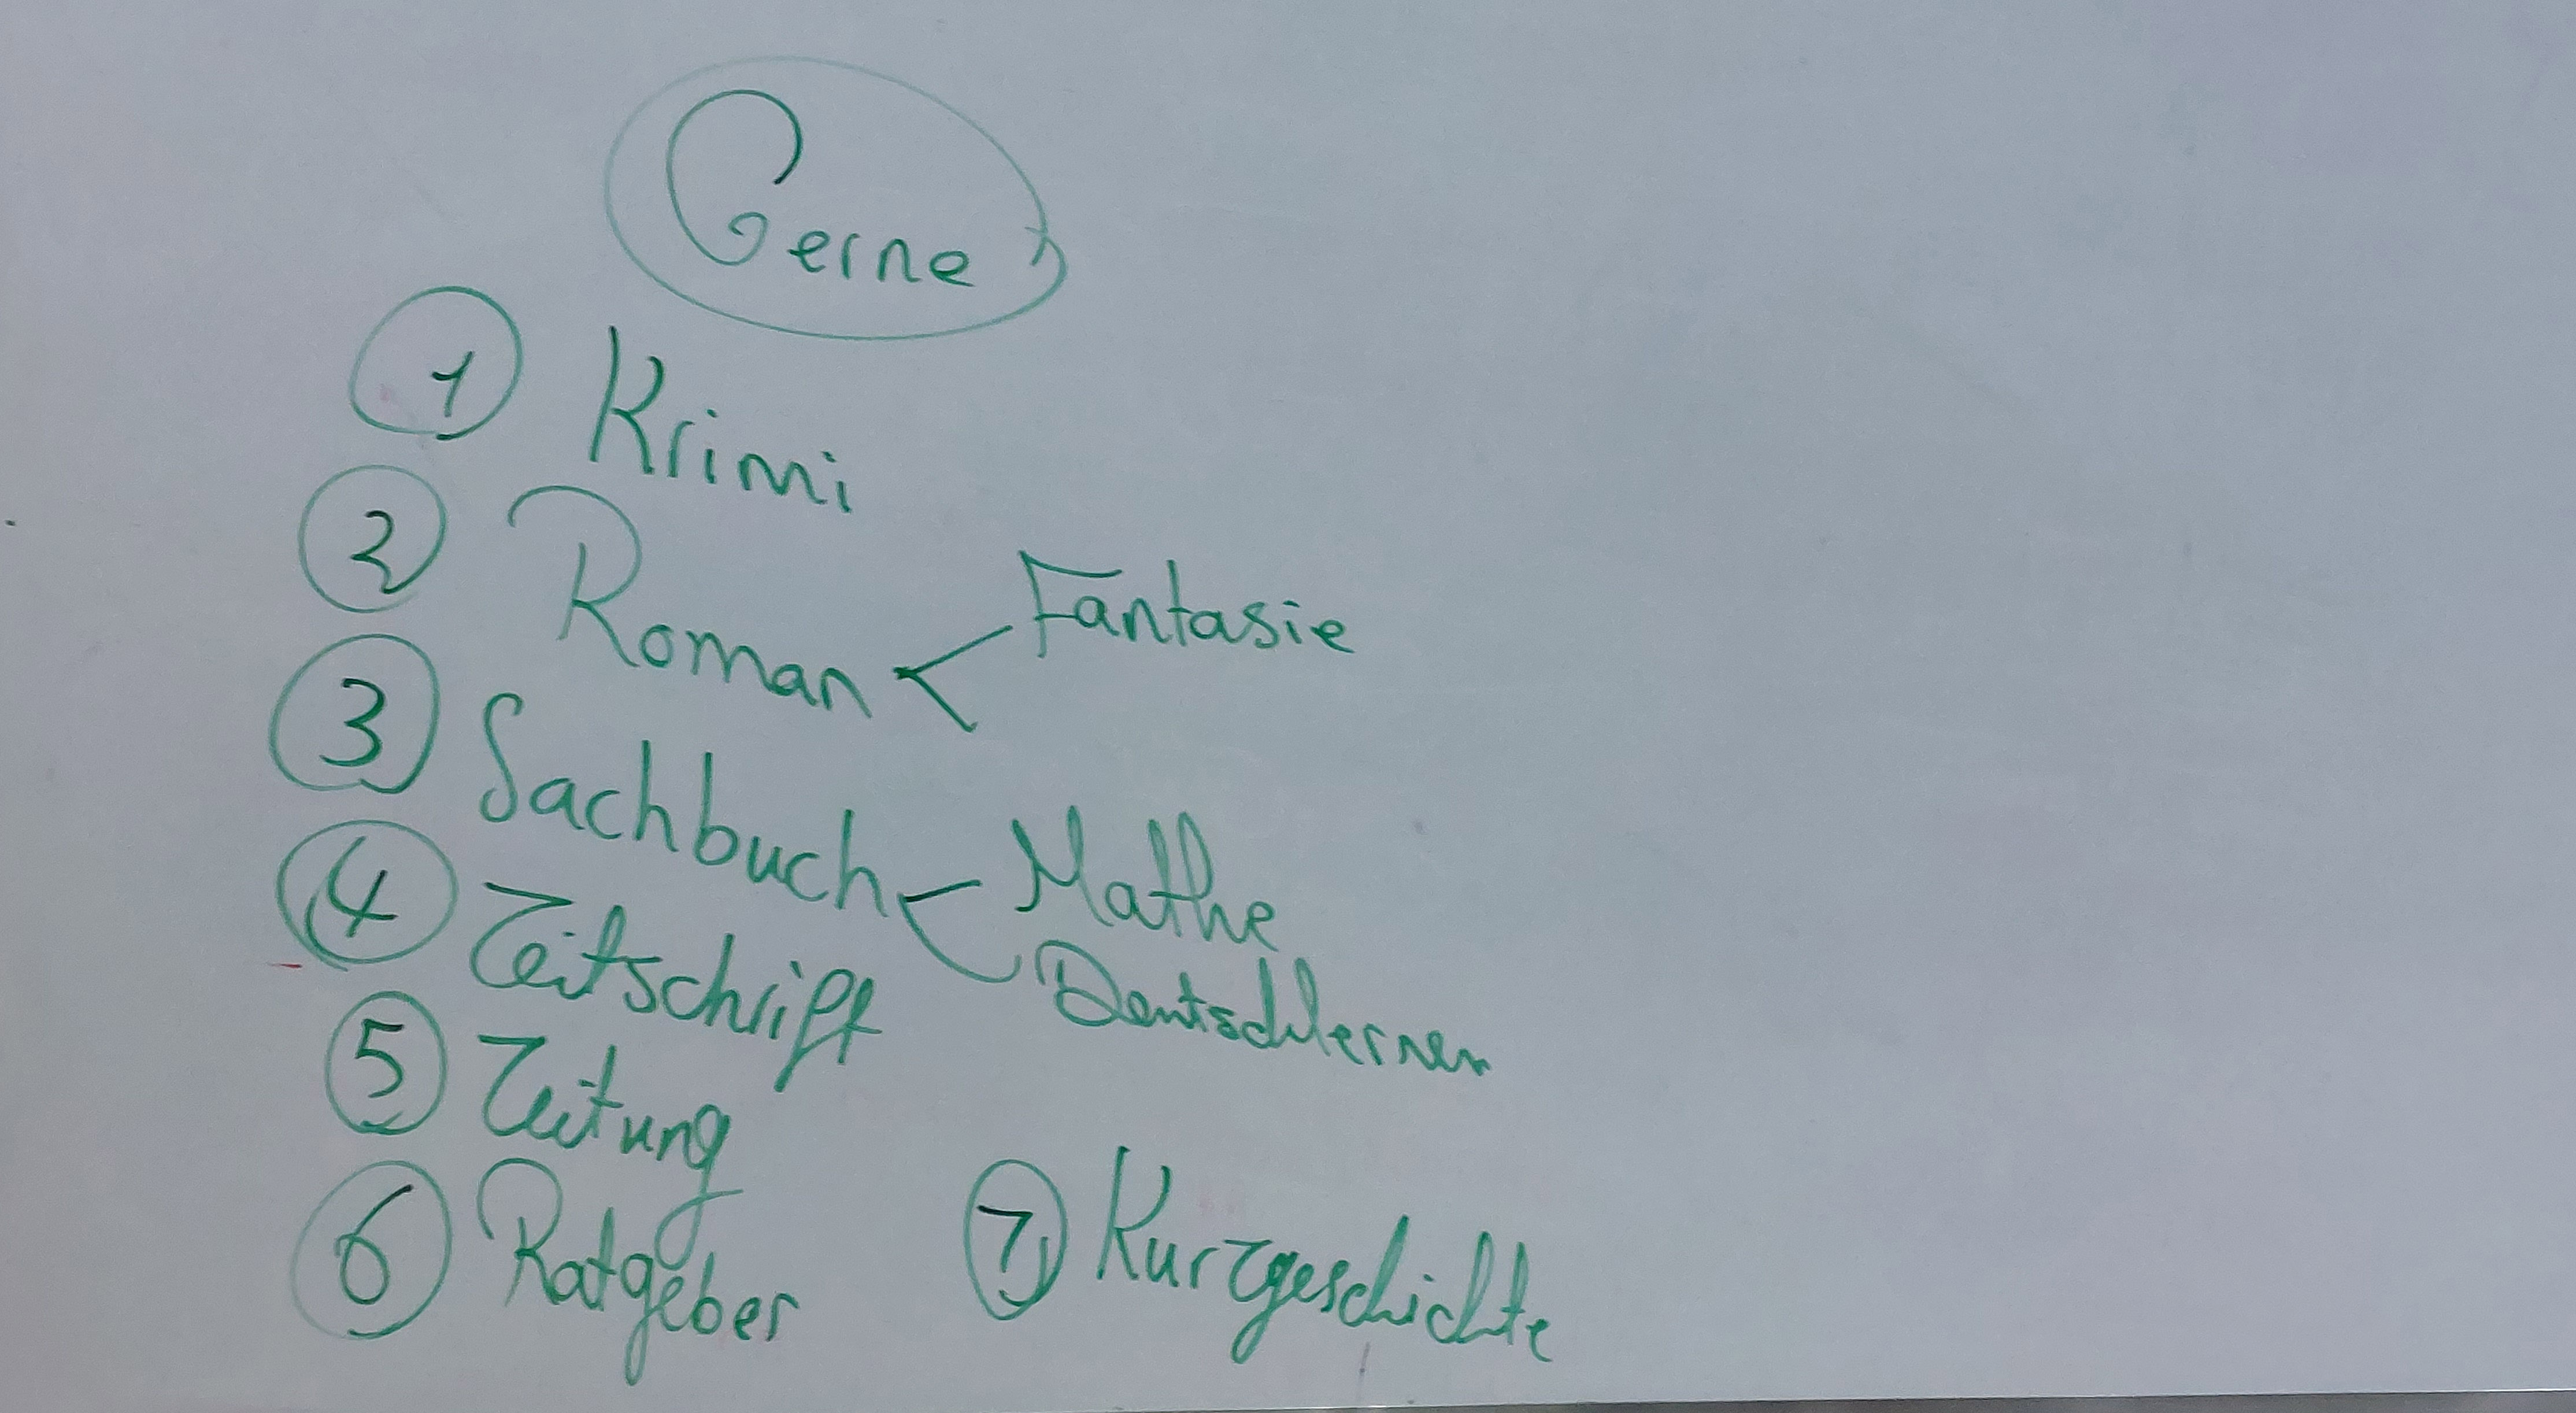 Gerne
1 Krimi
2 Roman < Fantasie
3 Sachbuch < Mathe
Deutschlernen
4 Zeitschrift
5 Zeitung
6 Ratgeber 7 Kurzgeschichte